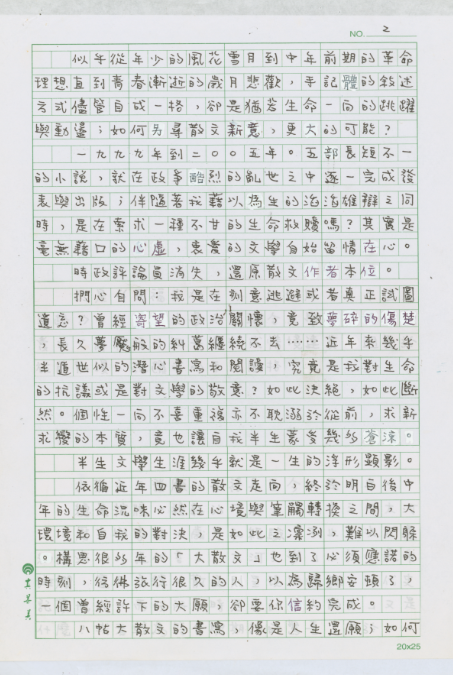 NO. 2
似乎從年少的風花雪月到中年前期的革命
理想直到青春漸逝的歲月悲歡,手記體的敘述
方式儘管自成一格,卻是猶若生命一向的跳躍
與動盪;如何另尋散文新意,更大的可能?
一九九九年到二○○五年。五部長短不一
的小說,就在政爭酷烈的亂世之中逐一完成發
表與出版;伴隨著我藉以為生的滔滔雄辯之同
時,是在索求一種不甘的生命救贖嗎?其實是
毫無藉口的心虛,衷愛的文學自始留情在心。
時政評論員消失,還原散文作者本位。
捫心自問:我是在刻意逃避或者真正試圖
遺忘?曾經寄望的政治關懷,竟致夢碎的傷楚
,長久夢魘般的糾葛纏繞不去……近年來幾乎
半遁世似的潛心書寫和閱讀,究竟是我對生命
的抗議或是對文學的敬意?如此決絕,如此斷
然。個性一向不喜重複亦不耽溺於從前,求新
求變的本質,竟也讓自我半生蒙受幾多蒼涼。
半生文學生涯幾乎就是一生的浮形顯影。
依循近年四書的散文走向,終於明白後中
年的生命況味必然在心境與筆觸轉後之間,大
環境和自我的對決,是如此之凜冽,難以閃躲
。構思很多年的「大散文」也到了必須應諾的
時刻,彷彿旅行很久的人,以為歸鄉安頓了,
一個曾經許下的大願,卻要你信約完成。
八帖大散文的書寫,像是人生還願;如何
20x25